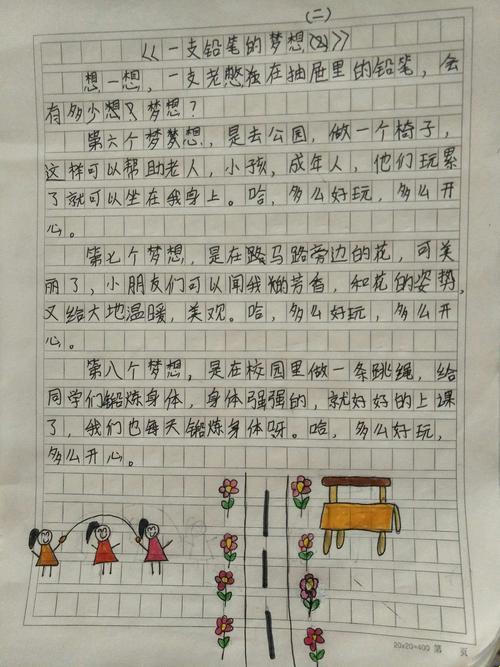 (二)
《一支铅笔的梦想(2)》
想一想，一支老憋独在抽屉里的铅笔，会
有多少想又梦想？
第六个梦梦想，是去公园，做一个椅子，
这样可以帮助老人，小孩，成年人，他们玩累
了就可以坐在我身上。哈，多么好玩，多么开
心。
第七个梦想，是在路马路旁边的花，可美
丽了，小朋友们可以闻我的芳香，和花的姿势，
又给大地温暖，美观。哈，多么好玩，多么开
心。
第八个梦想，是在校园里做一条跳绳，给
同学们锻炼身体，身体强强的，就好好的上课
了，我们也每天锻炼身体呀。哈，多么好玩，
多么开心。
20×20=400 第 页